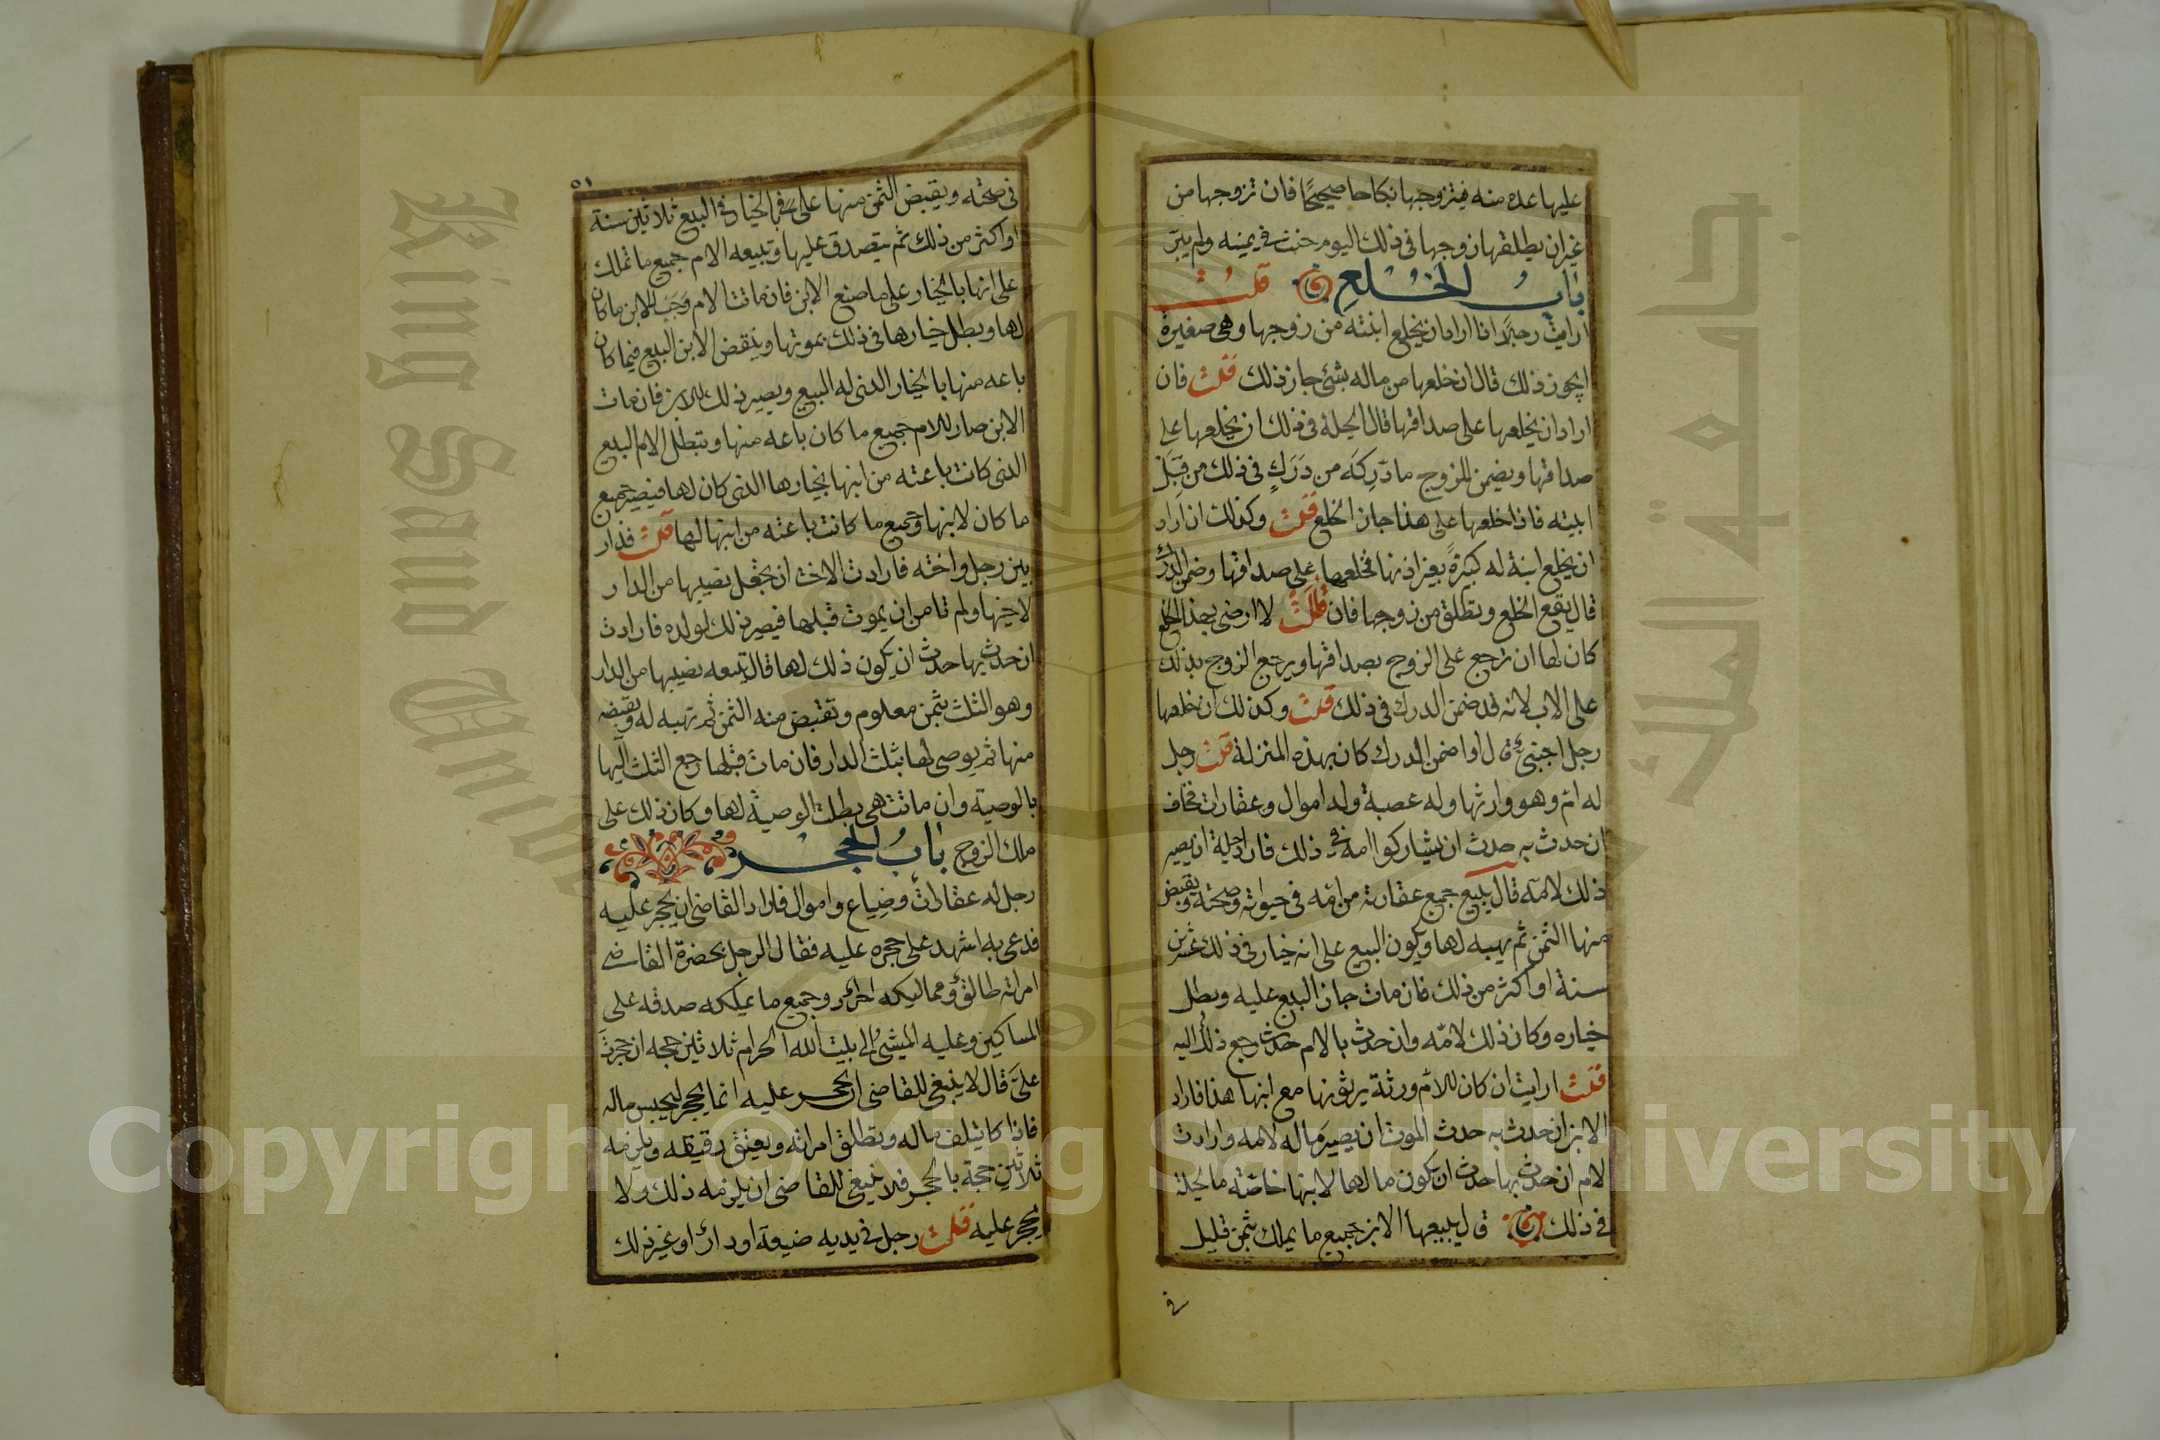 عليها عدة منه فيتزوجها نكاحا صحيحًا فان تزوجها من
غير ان يطلقها زوجها في ذلك اليوم حنث في يمينه ولم يبرّ
بابُ الخُلعِ قلت
ارايت رجلًا اذا اراد ان يخلع ابنته من زوجها وهي صغيرة
ايجوز ذلك قال ان خلعها من ماله بشئ جاز ذلك قلت فان
اراد ان يخلعها على صداقها قال الحيلة في ذلك ان يخلعها على
صداقها ويضمن للزوج ما دَرِكَه من دَرَكٍ في ذلك من قِبَل
ابنته فاذا خلعها على هذا جاز الخلع قلت وكذلك ان اراد
ان يخلع ابنة له كبيرةً بغير اذنها فخلعها على صداقها وضمن الدرك
قال يقع الخلع وتطلق من زوجها فان قالت لا ارضى بهذا الخلع
كان لها ان ترجع على الزوج بصداقها ويرجع الزوج بذلك
على الاب لانه قد ضمن الدرك في ذلك قلت وكذلك ان خلعها
رجل اجنبيّ قال اذا ضمن الدرك كان بهذه المنزلة قلت رجل
له امّ وهو وارثها وله عصبة وله اموال وعقارات فخاف
ان حدث به حدث ان يشاركوا امه في ذلك فاراد حيلة ان يصير
ذلك لامّه قال يبيع جميع عقاراته من امّه في حيوته وصحته ويقبض
منها الثمن ثم يهبه لها ويكون البيع على انه خيار في ذلك عشرين
سنة او اكثر من ذلك فان مات جاز البيع عليه وبطل
خياره وكان ذلك لامّه وان حدث بالام حدث رجع ذلك اليه
قلت ارايت ان كان للام ورثة يرثونها مع ابنها هذا فاراد
الابن ان حدث به حدث الموت ان يصير ماله لامه وارادت
الام ان حدث بها حدث ان يكون مالها لابنها خاصّة ما الحيلة
في ذلك قال يبيعها الابن جميع ما يملك بثمن قليل
في
٥١
في صحته ويقبض الثمن منها على انه بالخيار في البيع ثلاثين سنة
او اكثر من ذلك ثم يتصدق عليها وتبيعه الام جميع ما تملك
على انها بالخيار على ما صنع الابن فان ماتت الام وَجَبَ للابن ما كان
لها وبطل خيارها في ذلك بموتها وينقض الابن البيع فيما كان
باعه منها بالخيار الذي له البيع ويصير ذلك للابن فان مات
الابن صار للام جميع ما كان باعه منها وتبطل الام البيع
الذي كانت باعته من ابنها بخيارها الذي كان لها فيصير جميع
ما كان لابنها وجميع ما كانت باعته من ابنها لها قلت فدار
بين رجل واخته فارادت الاخت ان تجعل نصيبها من الدار
لاخيها ولم تامن ان يموت قبلها فيصير ذلك لولده فارادت
ان حدث بها حدث ان يكون ذلك لها قال تبيعه نصيبها من الدار
وهو الثلث بثمن معلوم وتقبض منه الثمن ثم تهبه له ويقبضه
منها ثم يوصي لها بثلث الدار فان مات قبلها رجع الثلث اليها
بالوصية وان ماتت هي بطلت الوصية لها وكان ذلك على
ملك الزوج بابُ الحَجر
رجل له عقارات وضياع واموال فاراد القاضي ان يحجر عليه
فدعى به اشهد على حجره عليه فقال الرجل بحضرة القاضي
امراته طالق ومماليكه احرار وجميع ما يملكه صدقه على
المساكين وعليه المشيُ الى بيت الله الحرام ثلاثين حجه ان حجرت
علىّ قال لا ينبغي للقاضي ان يحجر عليه انما يحجر ليحبس ماله
فاذا كان يتلف ماله وتطلق امراته ويعتق رقيقه ويلزمه
ثلاثين حجة بالحجر فلا ينبغي للقاضي ان يلزمه ذلك ولا
يحجر عليه قلت رجل في يديه ضيعة او دار او غير ذلك
Copyright © King Saud University
King Saud University
جامعة الملك